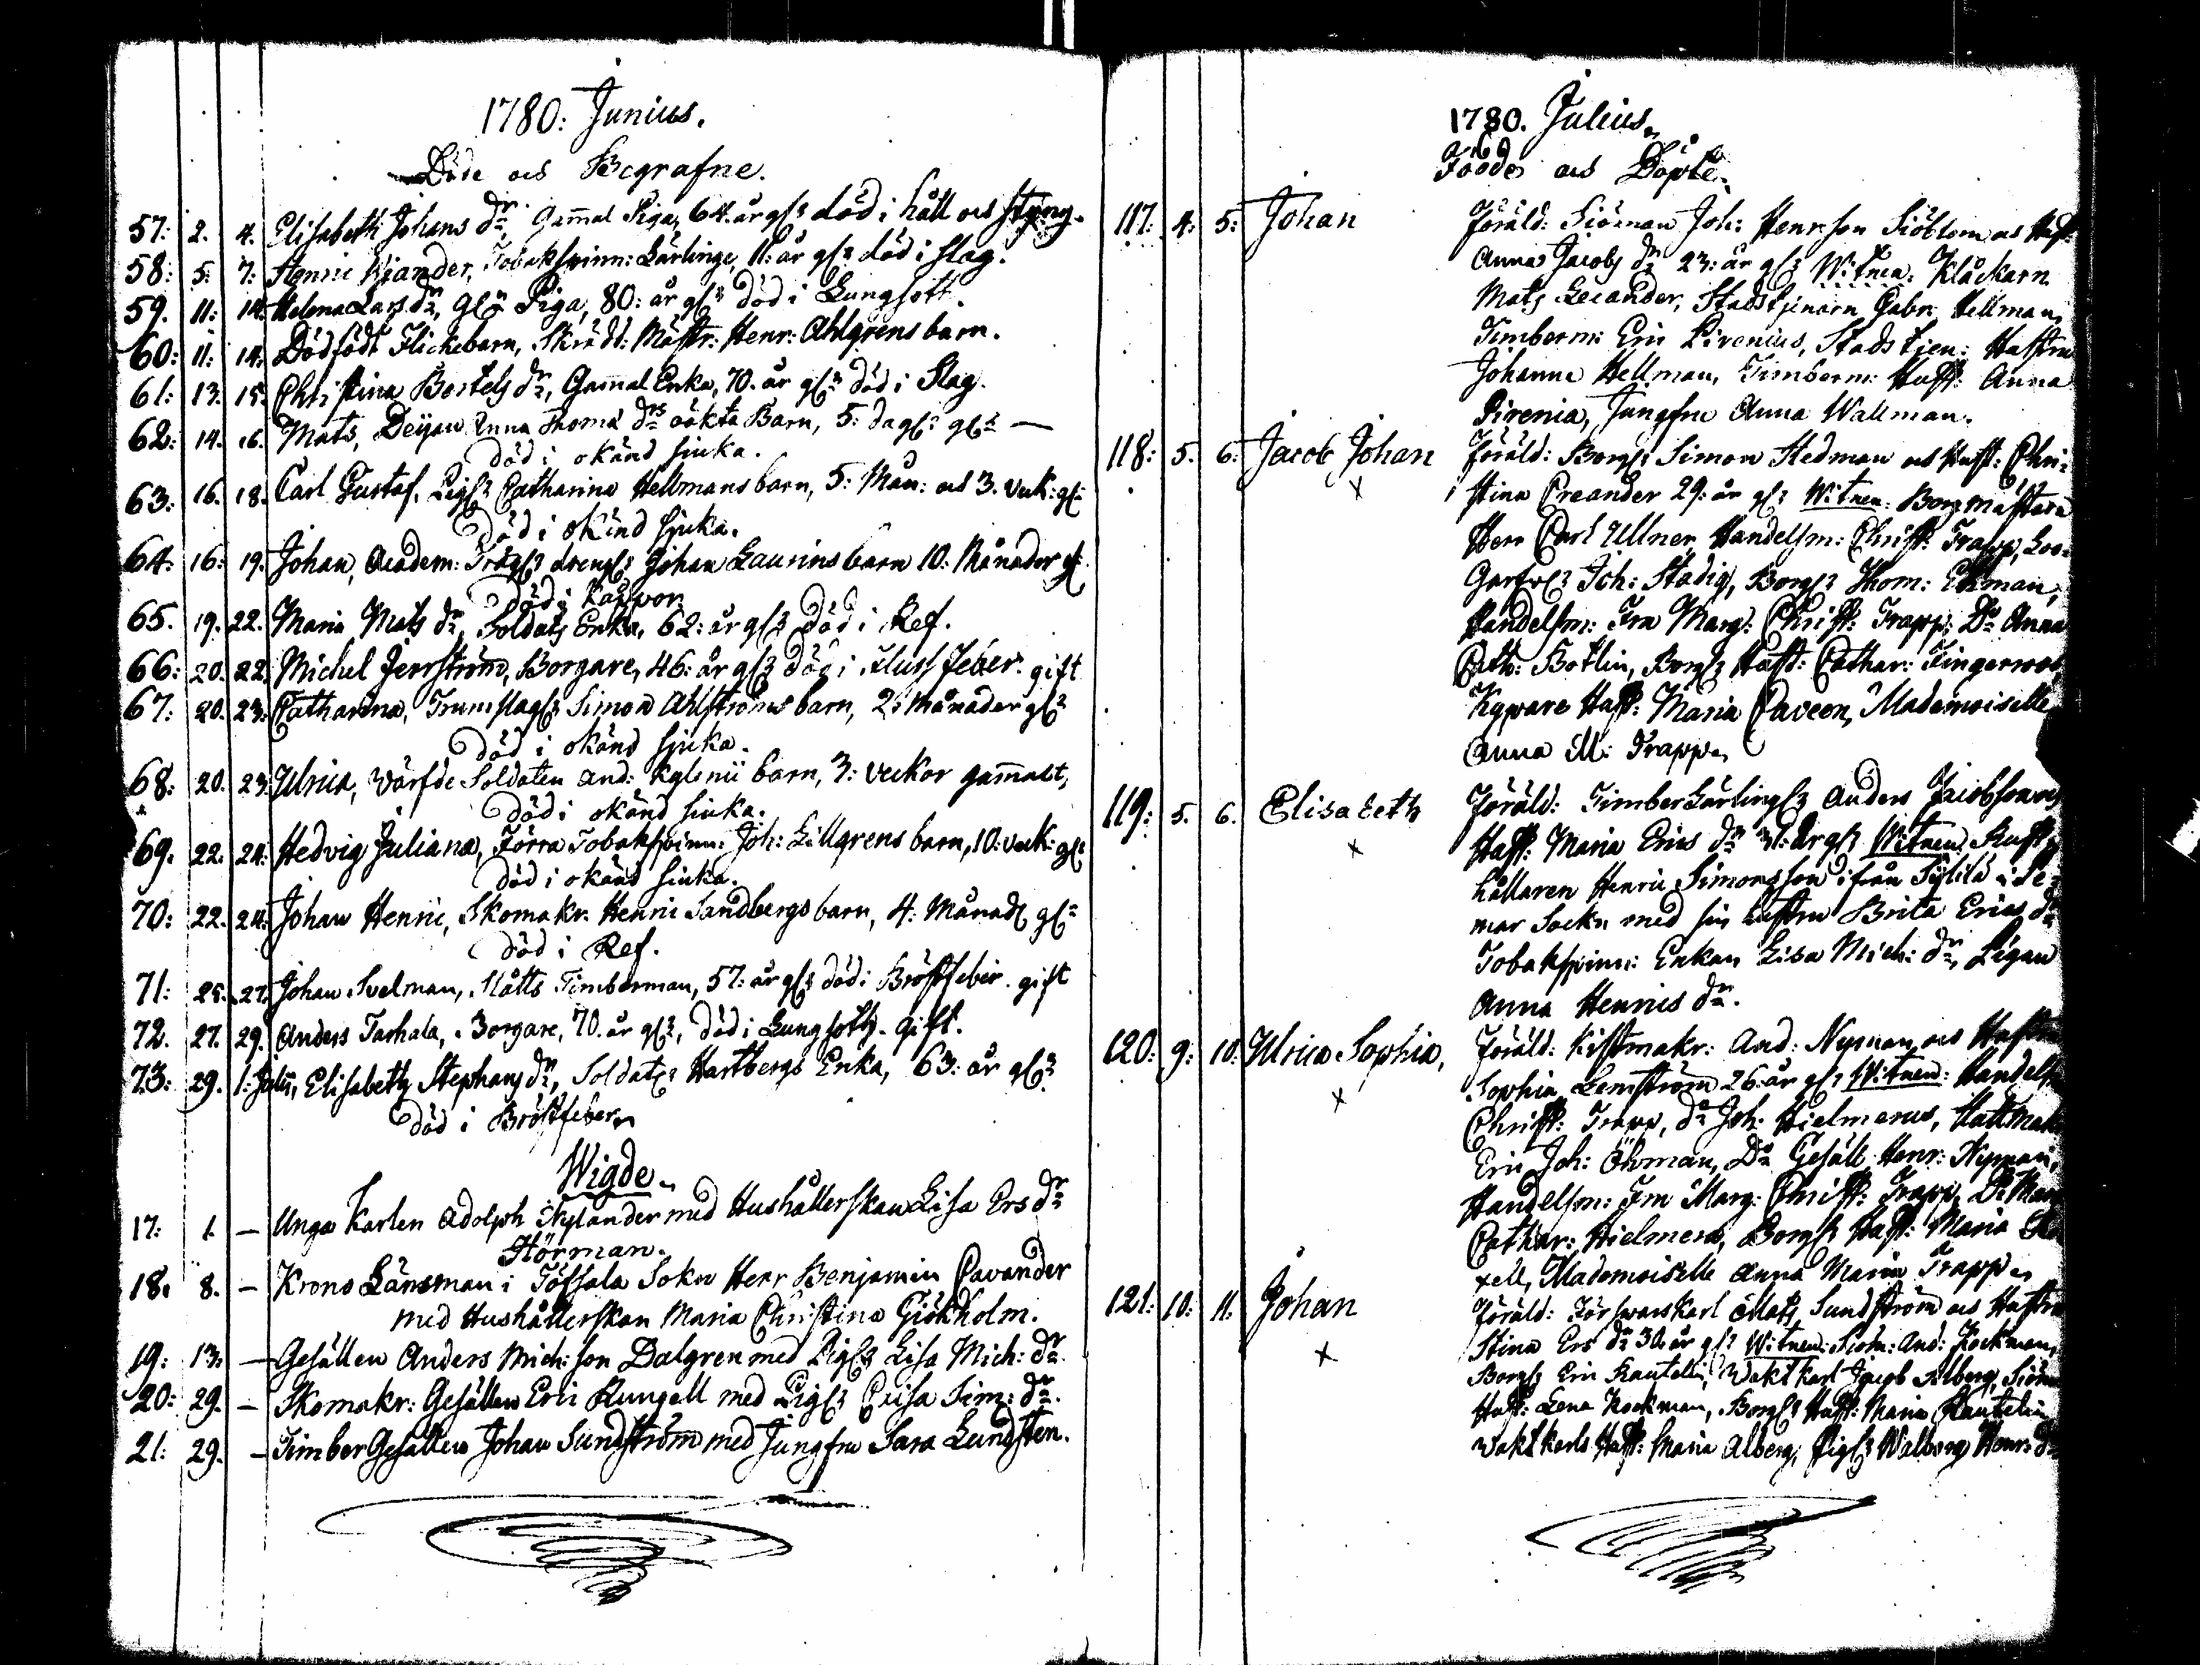 1780: Junius.
Döde och Begrafne.
57: 2. 4. Elisabeth Johans dr. Gam̄al Piga, 64. år gl: död i håll och styng.
58: 5: 7: Henric Kiander, Tobakspinn: Lärlinge, 11: år gl: död i slag.
59. 11: 14: Helena Lars dr, Gl: Piga, 80: år gl: död i Lungsott.
60: 11: 14: Dödfödt Flickebarn, Skrädd: Mästr: Henr: Ahlgrens barn.
61: 13. 15. Christina Bertels dr, Gam̄al Enka, 70. år gl: död i Slag.
62: 14. 16. Mats, Deijan Anna Thomæ drs oäkta Barn, 5: dag: gl: —
död i okänd sjuka.
63: 16. 18. Carl Gustaf, Pig: Catharina Hellmans barn, 5: Mån: och 3. veck: gl:
död i okänd sjuka.
64: 16: 19. Johan, Academ: Träg: dreng: Johan Laurins barn 10: Månader gl:
död i Kåppor
65. 19. 22. Maria Mats dr, Soldats Enka, 62: år gl: död i Ref.
66: 20. 22. Michel Jerrström, Borgare, 46: år gl: död i Fluss feber. gift
67: 20. 23: Catharina, Trumslag: Simon Ahlströms barn, 2: Månader gl:
död i okänd sjuka.
68: 20. 23: Ulrica, Värfde Soldaten And: Kylenii barn, 3: veckor gam̄alt,
död i okänd siuka.
69. 22. 24: Hedvig Juliana, Förra Tobakspinn: Joh: Lillgrens barn, 10: veck: gl:
död i okänd siuka.
70: 22. 24: Johan Henric, Skomakr. Henric Sandbergs barn, 4: Månad: gl:
död i Ref.
71: 25. 27. Johan Svelman, Slåtts Timberman, 57: år gl: död i Bröstfeber. gift
72. 27. 29. Anders Tarhala, Borgare, 70. år gl:, död i Lungsoth. Gift.
73: 29. 1: Julii, Elisabeth Stephans dr, Soldat: Hartbergs Enka, 63: år gl:
död i Bröstfeber
Wigde
17: 1. — Unga Karlen Adolph Nylander med Hushållerskan Lisa Ers dr
Störman.
18. 8. — Krono Länsman i Töfsala Sokn Herr Benjamin Cavander
med Hushållerskan Maria Christina Giökholm.
19: 13: — Gesällen Anders Mich: son Dalgren med Pig: Lisa Mich: dr.
20: 29. — Skomakr: Gesällen Eric Rungell med Pig: Caisa Sim: dr.
21: 29. — Timber Gesällen Johan Sundström med Jungfru Sara Lundsten.
1780. Julius
Födde och Döpte
117. 4. 5: Johan Föräld: Siöman Joh: Henr:son Siöblom och Hust:
Anna Jacobs dr 23: år gl: Witnen: Klåckarn
Mats Lecander, Stadstjenarn Gabr. Hellman,
Timberm: Eric Pirenius, Stads tjen: Hustru
Johanna Hellman, Timberm: Hust: Anna
Pirenia, Jungfru Anna Wallman.
118: 5. 6: Jacob Johan Föräld: Borg: Simon Stedman och Hust: Chri-
stina Creander 29: år gl: Witnen: Borgmästare
Herr Carl Ullner, Handelsm: Christ: Trapp, Loo-
Garfv: Joh: Stadig, Borg: Thom: Ekman,
Handelsm: Fru Marg: Christ: Trapp, Do Anna
Cath: Botlin, Borg: Hust: Cathar: Fingerroos
Kypare Hust: Maria Caveen, Mademoiselle
Anna M: Trapp
119: 5. 6. Elisabeth Föräld: Timber Lärling: Anders Jacobson och
Hust: Maria Erics dr 31: år gl: Witnen: Rust-
hållaren Henric Simonsson ifrån Pijlilä i Le-
mar Sockn med sin hustru Brita Erics dr
Tobakspinn: Enkan Lisa Mich: dr, Pigan
Anna Henrics dr.
120: 9: 10: Ulrica Sophia, Föräld: Kistmakr: And: Nyman och Hustru
Sophia Lemström 26: år gl: Witnen: Handelsm
Christ: Trapp, do Joh: Hielmerus, Hattmak
Eric Joh: Öhrman, Do Gesäll Henr: Nyman,
Handelsm: Fru Marg: Christ: Trapp, Do Mar
Cathar: Hielmera, Borg: Hust: Maria
xell, Mademoiselle Anna Maria Trapp
121: 10: 11: Johan Föräld: Försvarskarl Mats Sundström och Hustru
Stina Ers dr 30: år gl: Witnen: Siöm: And: Kockman,
Borg: Eric Rautelin, Waktkarl Jacob Alberg, Siöm
Hust: Lena Kockman, Borg: Hust: Maria Rautelin
Waktkarls Hust: Maria Alberg, Pig: Walborg Henr: dr